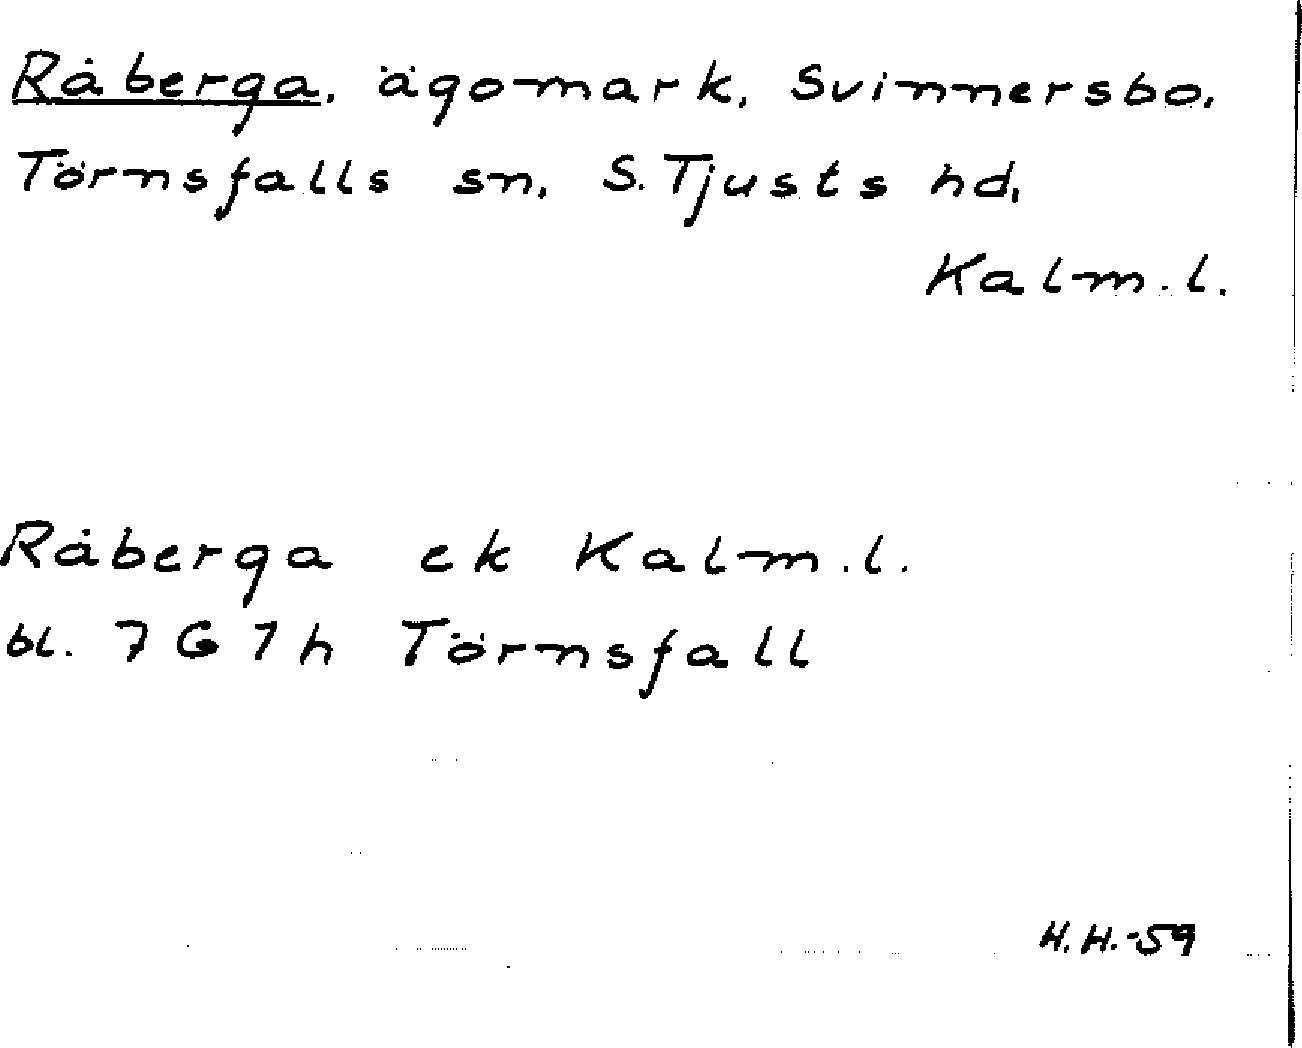 Råberga, ägomark, Svinnersbo,
Törnsfalls sn, S. Tjusts hd,
Kalm. l.
Råberga ek Kalm. l.
bl. 7 G 7 h Törnsfall
H.H.-59